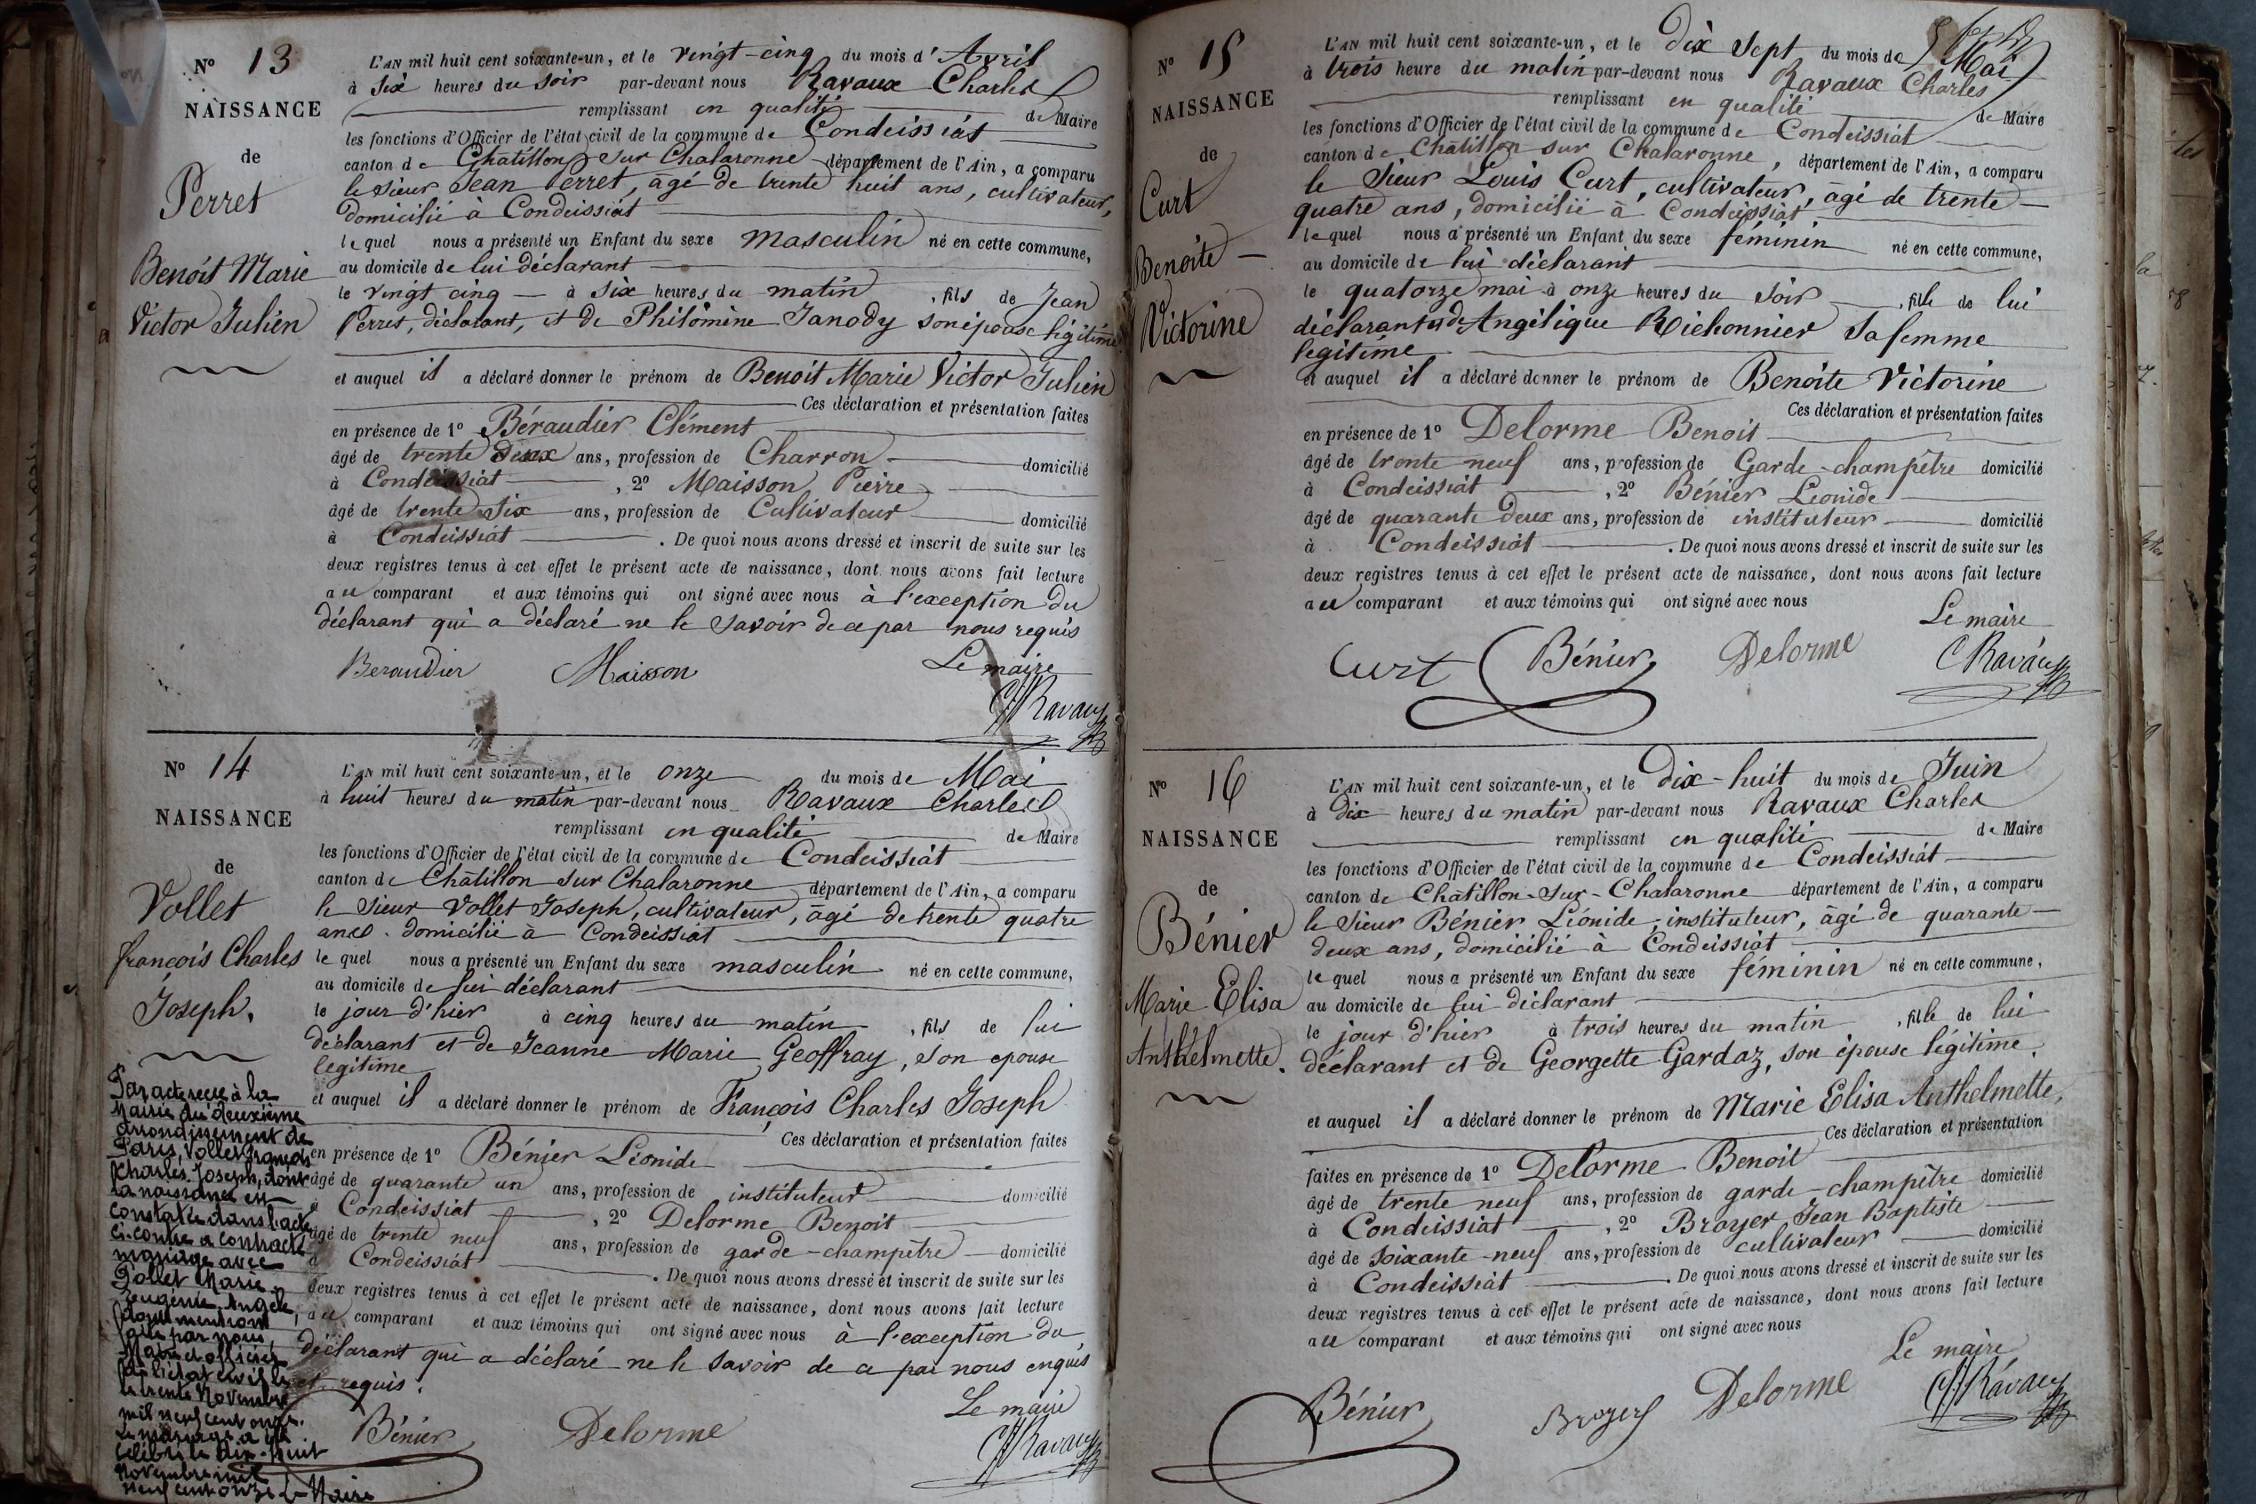 N° 13
NAISSANCE
de
Perret
Benoit Marie
Victor Julien
L'AN mil huit cent soixante-un, et le vingt-cinq du mois d'Avril
à six heures du soir par-devant nous Ravaux Charles
remplissant en qualité de Maire
les fonctions d'Officier de l'état civil de la commune de Condeissiat
canton de Chatillon sur Chalaronne département de l'Ain, a comparu
le sieur Jean Perret, âgé de trente huit ans, cultivateur,
domicilié à Condeissiat
lequel nous a présenté un Enfant du sexe masculin né en cette commune,
au domicile de lui déclarant
le vingt cinq à six heures du matin, fils de Jean
Perret, déclarant, et de Philomène Janody son épouse légitime
et auquel il a déclaré donner le prénom de Benoit Marie Victor Julien
Ces déclaration et présentation faites
en présence de 1° Béraudier Clément
âgé de trente deux ans, profession de Charron domicilié
à Condeissiat, 2° Maisson Pierre
âgé de trente six ans, profession de Cultivateur domicilié
à Condeissiat. De quoi nous avons dressé et inscrit de suite sur les
deux registres tenus à cet effet le présent acte de naissance, dont nous avons fait lecture
au comparant et aux témoins qui ont signé avec nous à l'exception du
déclarant qui a déclaré ne le savoir de ce par nous requis
Beraudier Maisson Le maire
C. Ravaux
N° 14
NAISSANCE
de
Vollet
françois Charles
Joseph.
L'AN mil huit cent soixante-un, et le onze du mois de Mai
à huit heures du matin par-devant nous Ravaux Charles
remplissant en qualité de Maire
les fonctions d'Officier de l'état civil de la commune de Condeissiat
canton de Châtillon sur Chalaronne département de l'Ain, a comparu
le sieur Vollet Joseph, cultivateur, âgé de trente quatre
ans. domicilié à Condeissiat
lequel nous a présenté un Enfant du sexe masculin né en cette commune,
au domicile de lui déclarant
le jour d'hier à cinq heures du matin, fils de lui
déclarant et de Jeanne Marie Geoffray, son epouse
légitime
et auquel il a déclaré donner le prénom de François Charles Joseph
Ces déclaration et présentation faites
en présence de 1° Bénier Léonide
âgé de quarante un ans, profession de instituteur domicilié
à Condeissiat, 2° Delorme Benoit
âgé de trente neuf ans, profession de garde-champêtre domicilié
à Condeissiat. De quoi nous avons dressé et inscrit de suite sur les
deux registres tenus à cet effet le présent acte de naissance, dont nous avons fait lecture
au comparant et aux témoins qui ont signé avec nous à l'exception du
déclarant qui a déclaré ne le savoir de ce par nous enquis
et requis.
Bénier Delorme Le maire
C. Ravaux
Par acte reçu à la
Mairie du deuxième
arrondissement de
Paris, Vollet François
Charles Joseph, dont
la naissance est
constatée dans l'acte
ci-contre a contracté
mariage avec
Pollet Marie
Eugénie Angèle,
dont mention
faite par nous,
Maire et officier
de l'état civil le
trente Novembre
mil neuf cent onze.
Le mariage a été
célébré le dix-huit
Novembre mil
neuf cent onze Le Maire
N° 15
NAISSANCE
de
Curt
Benoite
Victorine
L'AN mil huit cent soixante-un, et le dix sept du mois de Mai
à trois heure du matin par-devant nous Ravaux Charles
remplissant en qualité de Maire
les fonctions d'Officier de l'état civil de la commune de Condeissiat
canton de Châtillon sur Chalaronne, département de l'Ain, a comparu
le Sieur Louis Curt, cultivateur, âgé de trente
quatre ans, domicilié à Condeissiat
lequel nous a présenté un Enfant du sexe féminin né en cette commune,
au domicile de lui déclarant
le quatorze mai à onze heures du soir, fille de lui
déclarant et de Angélique Richonnier sa femme
legitime
et auquel il a déclaré donner le prénom de Benoite Victorine
Ces déclaration et présentation faites
en présence de 1° Delorme Benoit
âgé de trente neuf ans, profession de Garde-champêtre domicilié
à Condeissiat, 2° Bénier Léonide
âgé de quarante deux ans, profession de instituteur domicilié
à Condeissiat. De quoi nous avons dressé et inscrit de suite sur les
deux registres tenus à cet effet le présent acte de naissance, dont nous avons fait lecture
au comparant et aux témoins qui ont signé avec nous
Le maire
Curt Bénier Delorme C. Ravaux
N° 16
NAISSANCE
de
Bénier
Marie Elisa
Anthelmette.
L'AN mil huit cent soixante-un, et le dix-huit du mois de Juin
à dix heures du matin par-devant nous Ravaux Charles
remplissant en qualité de Maire
les fonctions d'Officier de l'état civil de la commune de Condeissiat
canton de Châtillon-sur-Chalaronne département de l'Ain, a comparu
le Sieur Bénier Léonide, instituteur, âgé de quarante
deux ans, domicilié à Condeissiat
lequel nous a présenté un Enfant du sexe féminin né en cette commune,
au domicile de lui déclarant
le jour d'hier à trois heures du matin, fille de lui
déclarant et de Georgette Gardaz, son épouse légitime.
et auquel il a déclaré donner le prénom de Marie Elisa Anthelmette,
Ces déclaration et présentation
faites en présence de 1° Delorme Benoit
âgé de trente neuf ans, profession de garde-champêtre domicilié
à Condeissiat, 2° Broyer Jean Baptiste
âgé de soixante-neuf ans, profession de cultivateur domicilié
à Condeissiat. De quoi nous avons dressé et inscrit de suite sur les
deux registres tenus à cet effet le présent acte de naissance, dont nous avons fait lecture
au comparant et aux témoins qui ont signé avec nous
Le maire
Bénier Broyer Delorme C. Ravaux